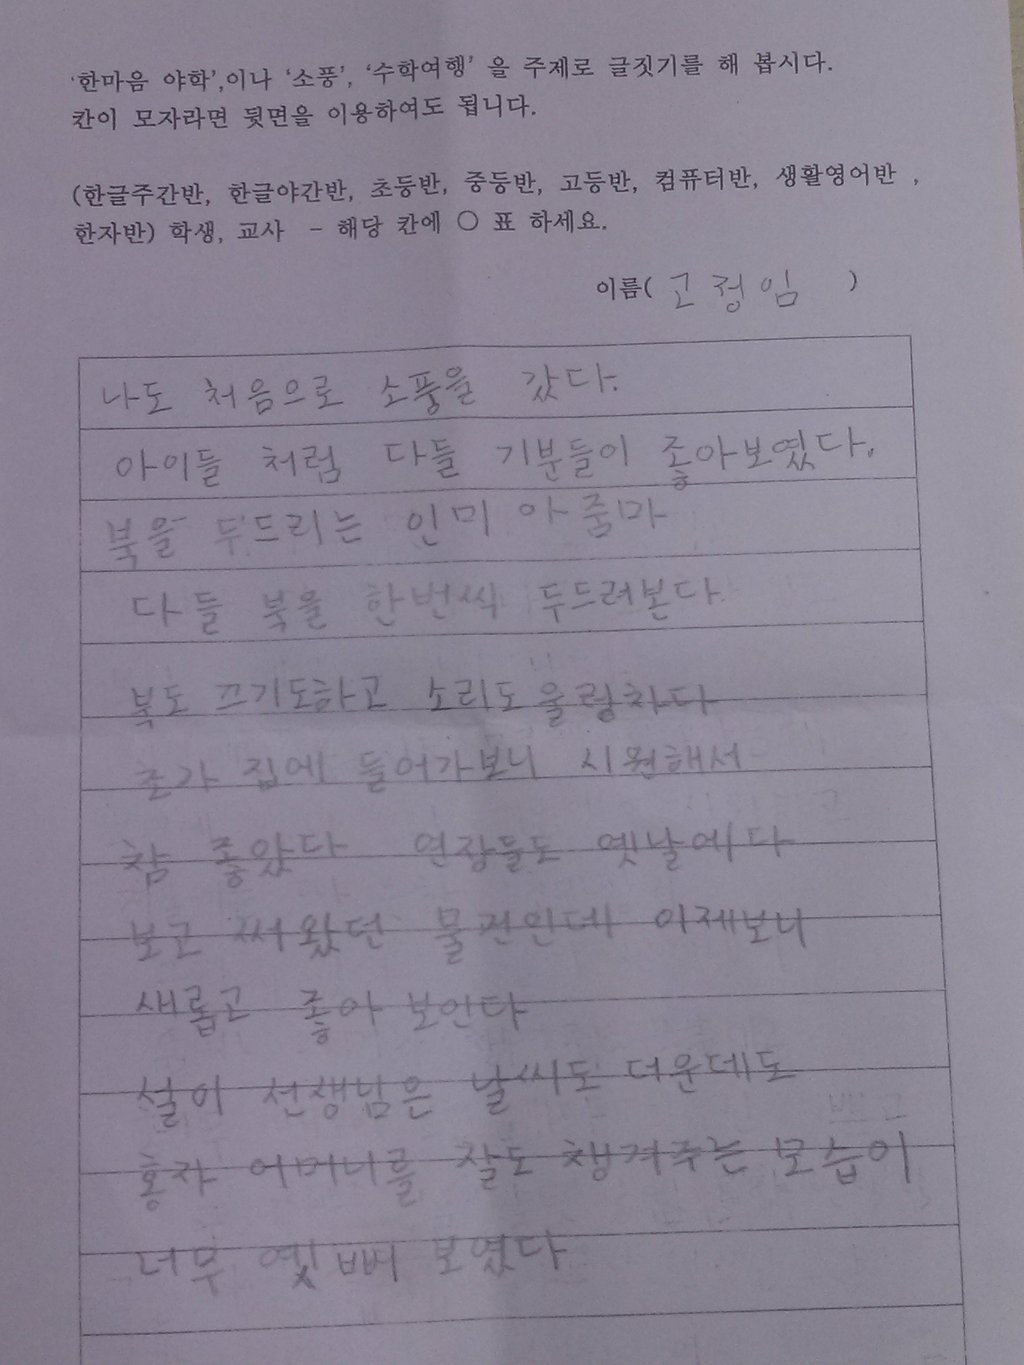 '한마음 야학',이나 '소풍', '수학여행' 을 주제로 글짓기를 해 봅시다.
칸이 모자라면 뒷면을 이용하여도 됩니다.
(한글주간반, 한글야간반, 초등반, 중등반, 고등반, 컴퓨터반, 생활영어반 ,
한자반) 학생, 교사 - 해당 칸에 ○ 표 하세요.
이름( 고정임 )
나도 처음으로 소풍을 갔다.
아이들 처럼 다들 기분들이 좋아보였다.
북을 두드리는 인미 아줌마
다들 북을 한번씩 두드려본다
북도 끄기도하고 소리도 울렁차다
초가 집에 들어가보니 시원해서
참 좋았다 연장들도 옛날에 다
보고 써왔던 물건인데 이제보니
새롭고 좋아 보안다
설이 선생님은 날씨도 더운데도
홍자 어머니를 잘도 챙겨주는 모습이
너무 옛뻐 보였다